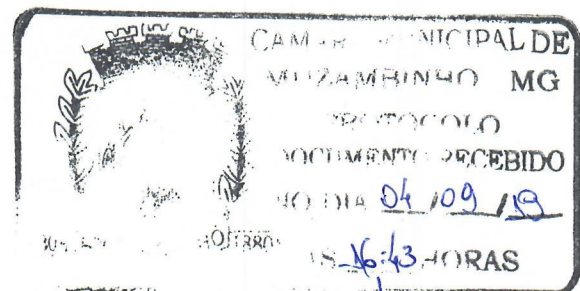 CAMARA MUNICIPAL DE
MUZAMBINHO MG
PROTOCOLO
DOCUMENTO RECEBIDO
NO DIA 04/09/19
AS 16:43 HORAS